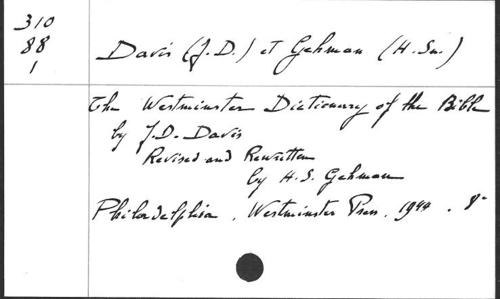 310
88
1
Davis (J.D.) et Gehman (H. Sn.)
The Westminster Dictionary of the Bible
by J.D. Davis
Revised and Rewritten
by H.S. Gehman
Philadelphia, Westminster Press, 1944. 8°